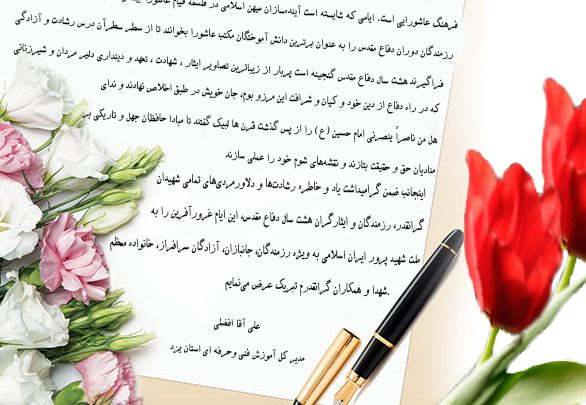 فرهنگ عاشورایی است. ایامی که شایسته است آینده‌سازان میهن اسلامی در فلسفه قیام عاشورا
رزمندگان دوران دفاع مقدس را به عنوان برترین دانش آموختگان مکتب عاشورا بخوانند تا از سطر سطرآن درس رشادت و آزادگی
فراگیرند هشت سال دفاع مقدس گنجینه است پربار از زیباترین تصاویر ایثار ، شهادت ، تعهد و دینداری دلیر مردان و شیرزنانی
که در راه دفاع از دین خود و کیان و شرافت این مرزو بوم، جان خویش در طبق اخلاص نهادند و ندای
هل من ناصراً ینصرنی امام حسین (ع) را از پس گذشت قرن ها لبیک گفتند تا مبادا حافظان جهل و تاریکی بر
منادیان حق و حقیقت بتازند و نقشه‌های شوم خود را عملی سازند
اینجانب ضمن گرامیداشت یاد و خاطره رشادت‌ها و دلاورمردی‌های تمامی شهیدان
گرانقدر، رزمندگان و ایثارگران هشت سال دفاع مقدس، این ایام غرورآفرین را به
ملت شهید پرور ایران اسلامی به ویژه رزمندگان، جانبازان، آزادگان سرافراز، خانواده معظم
شهدا و همکاران گرانقدرم تبریک عرض می‌نمایم.
علی آقا افضلی
مدیر کل آموزش فنی وحرفه ای استان یزد